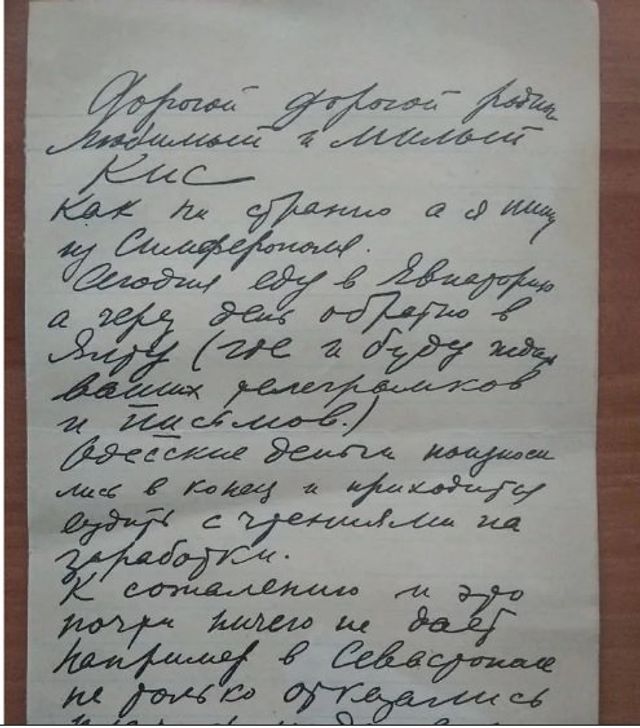 Дорогой дорогой родн
любимый и милый
Кис
Как ни странно а я пишу
из Симферополя.
Сегодня еду в Евпаторию
а через день обратно в
Ялту (где и буду ждать
ваших телеграмков
и письмов.)
Одесские деньги поизноси
лись в конец и приходится
ездить с чтениями на
заработки.
К сожалению и это
почти ничего не дает
Например в Севастополе
не только отказались